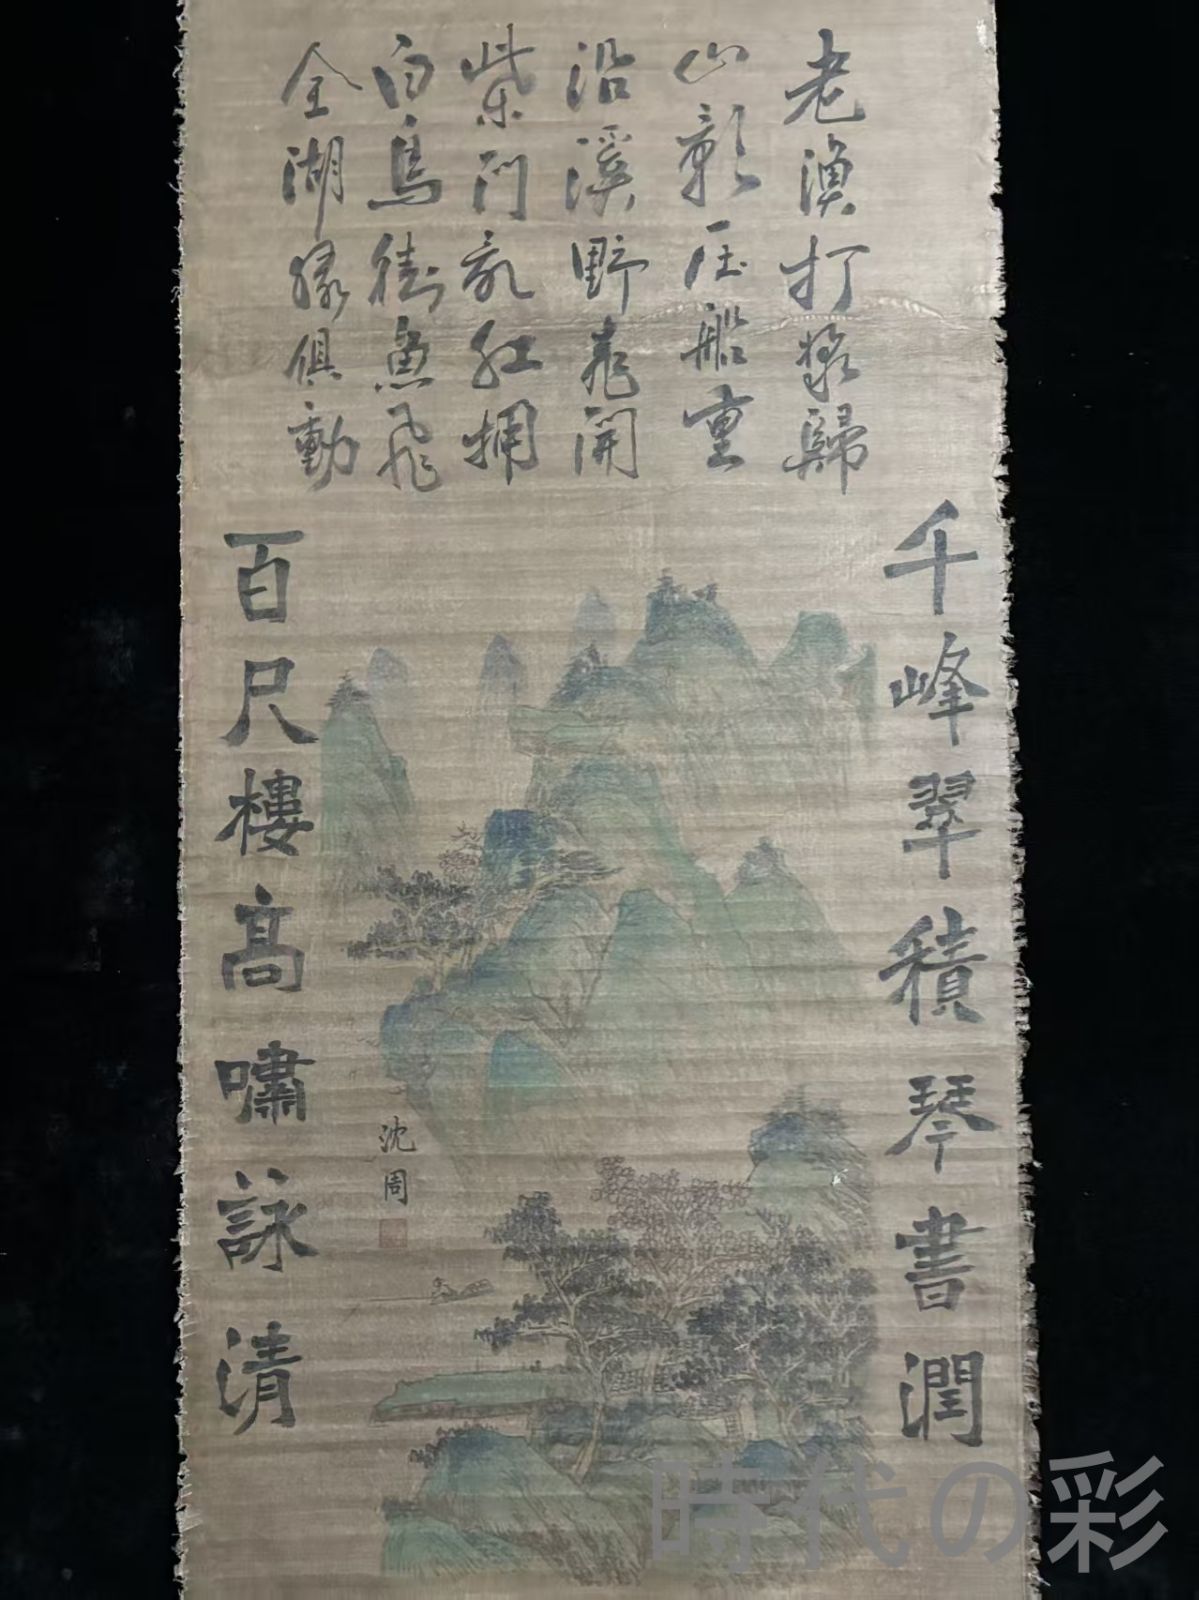 老漁打槳歸
山影压船重
沿溪野桃開
柴門乱紅拥
白鳥銜魚飛
全湖綠俱動
千峰翠積琴書潤
百尺樓高嘯詠清
沈周
時代の彩